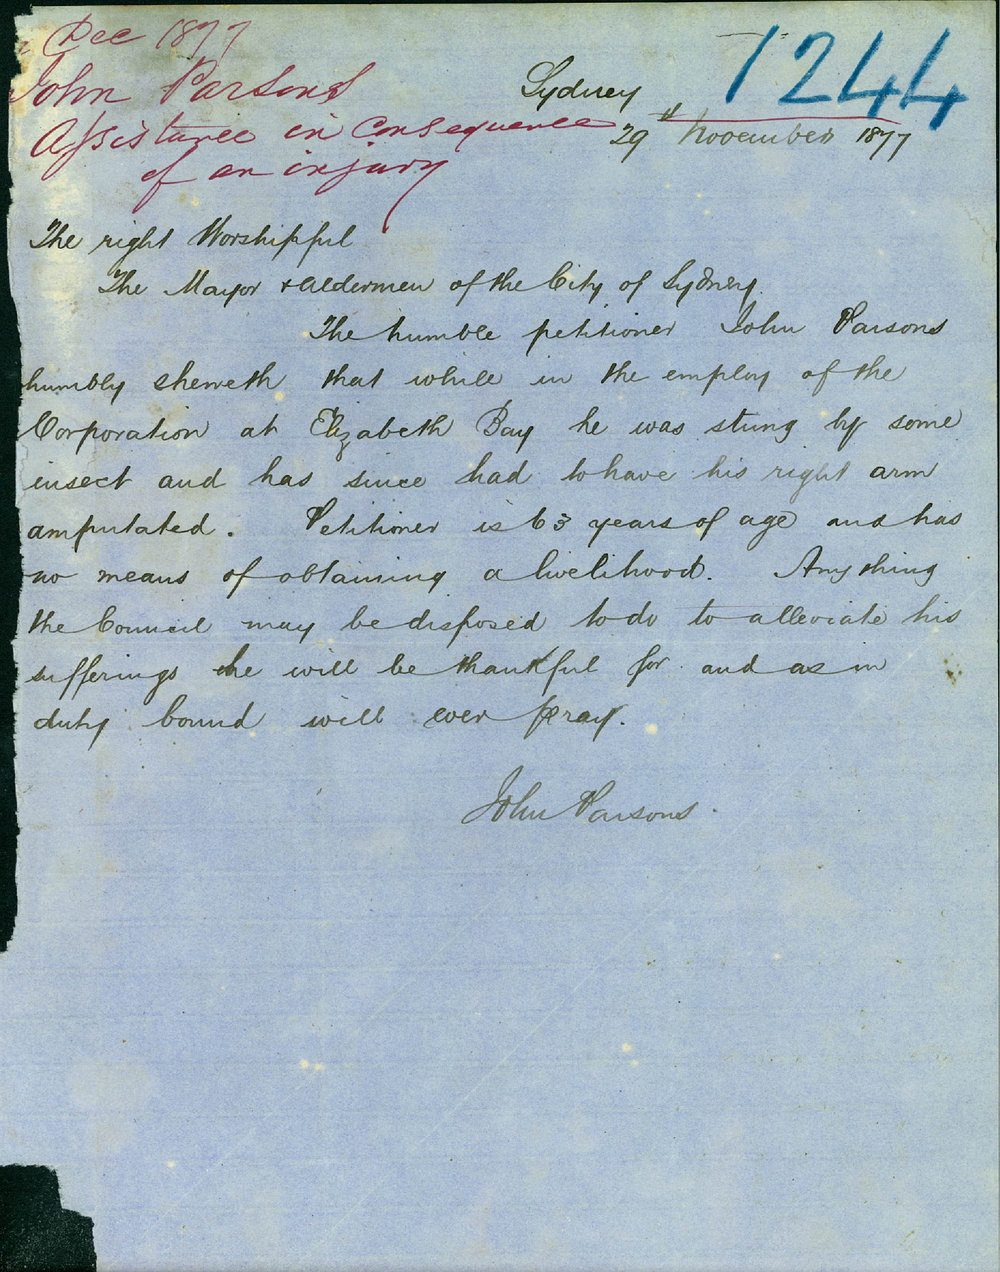 Dec 1877
John Parsons
Assistance in consequence
of an injury
1244
Sydney
29th November 1877
The right Worshipful
The Mayor & Aldermen of the City of Sydney.
The humble petitioner John Parsons
humbly sheweth that while in the employ of the
Corporation at Elizabeth Bay he was stung by some
insect and has since had to have his right arm
amputated. Petitioner is 63 years of age and has
no means of obtaining a livelihood. Any thing
the Council may be disposed to do to alleviate his
sufferings he will be thankful for and as in
duty bound will ever pray.
John Parsons